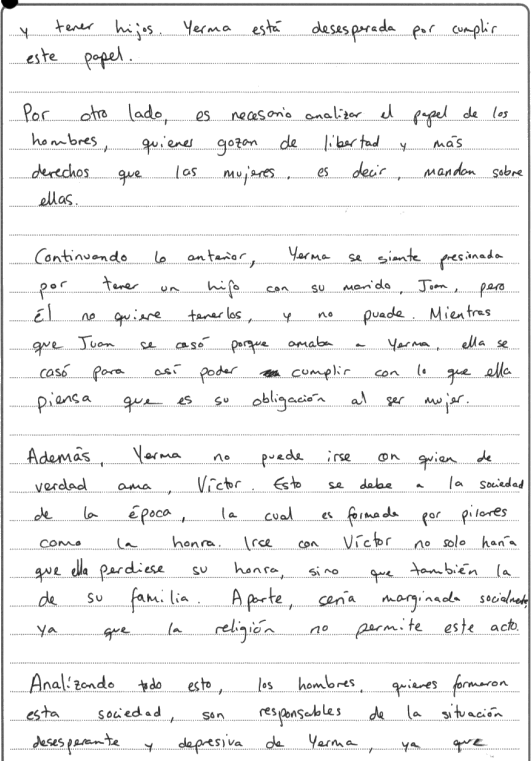 y tener hijos. Yerma está desesperada por cumplir
este papel.
Por otro lado, es necesario analizar el papel de los
hombres, quienes gozan de libertad y más
derechos que las mujeres, es decir, mandan sobre
ellas.
Continuando lo anterior, Yerma se siente presionada
por tener un hijo con su marido, Juan, pero
él no quiere tenerlos, y no puede. Mientras
que Juan se casó porque amaba a Yerma, ella se
casó para así poder cumplir con lo que ella
piensa que es su obligación al ser mujer.
Además, Yerma no puede irse con quien de
verdad ama, Víctor. Esto se debe a la sociedad
de la época, la cual es formada por pilares
como la honra. Irce con Víctor no solo haría
que ella perdiese su honra, sino que también la
de su familia. Aparte, sería marginada socialmente,
ya que la religión no permite este acto.
Analizando todo esto, los hombres, quienes formaron
esta sociedad, son responsables de la situación
desesperante y depresiva de Yerma, ya que